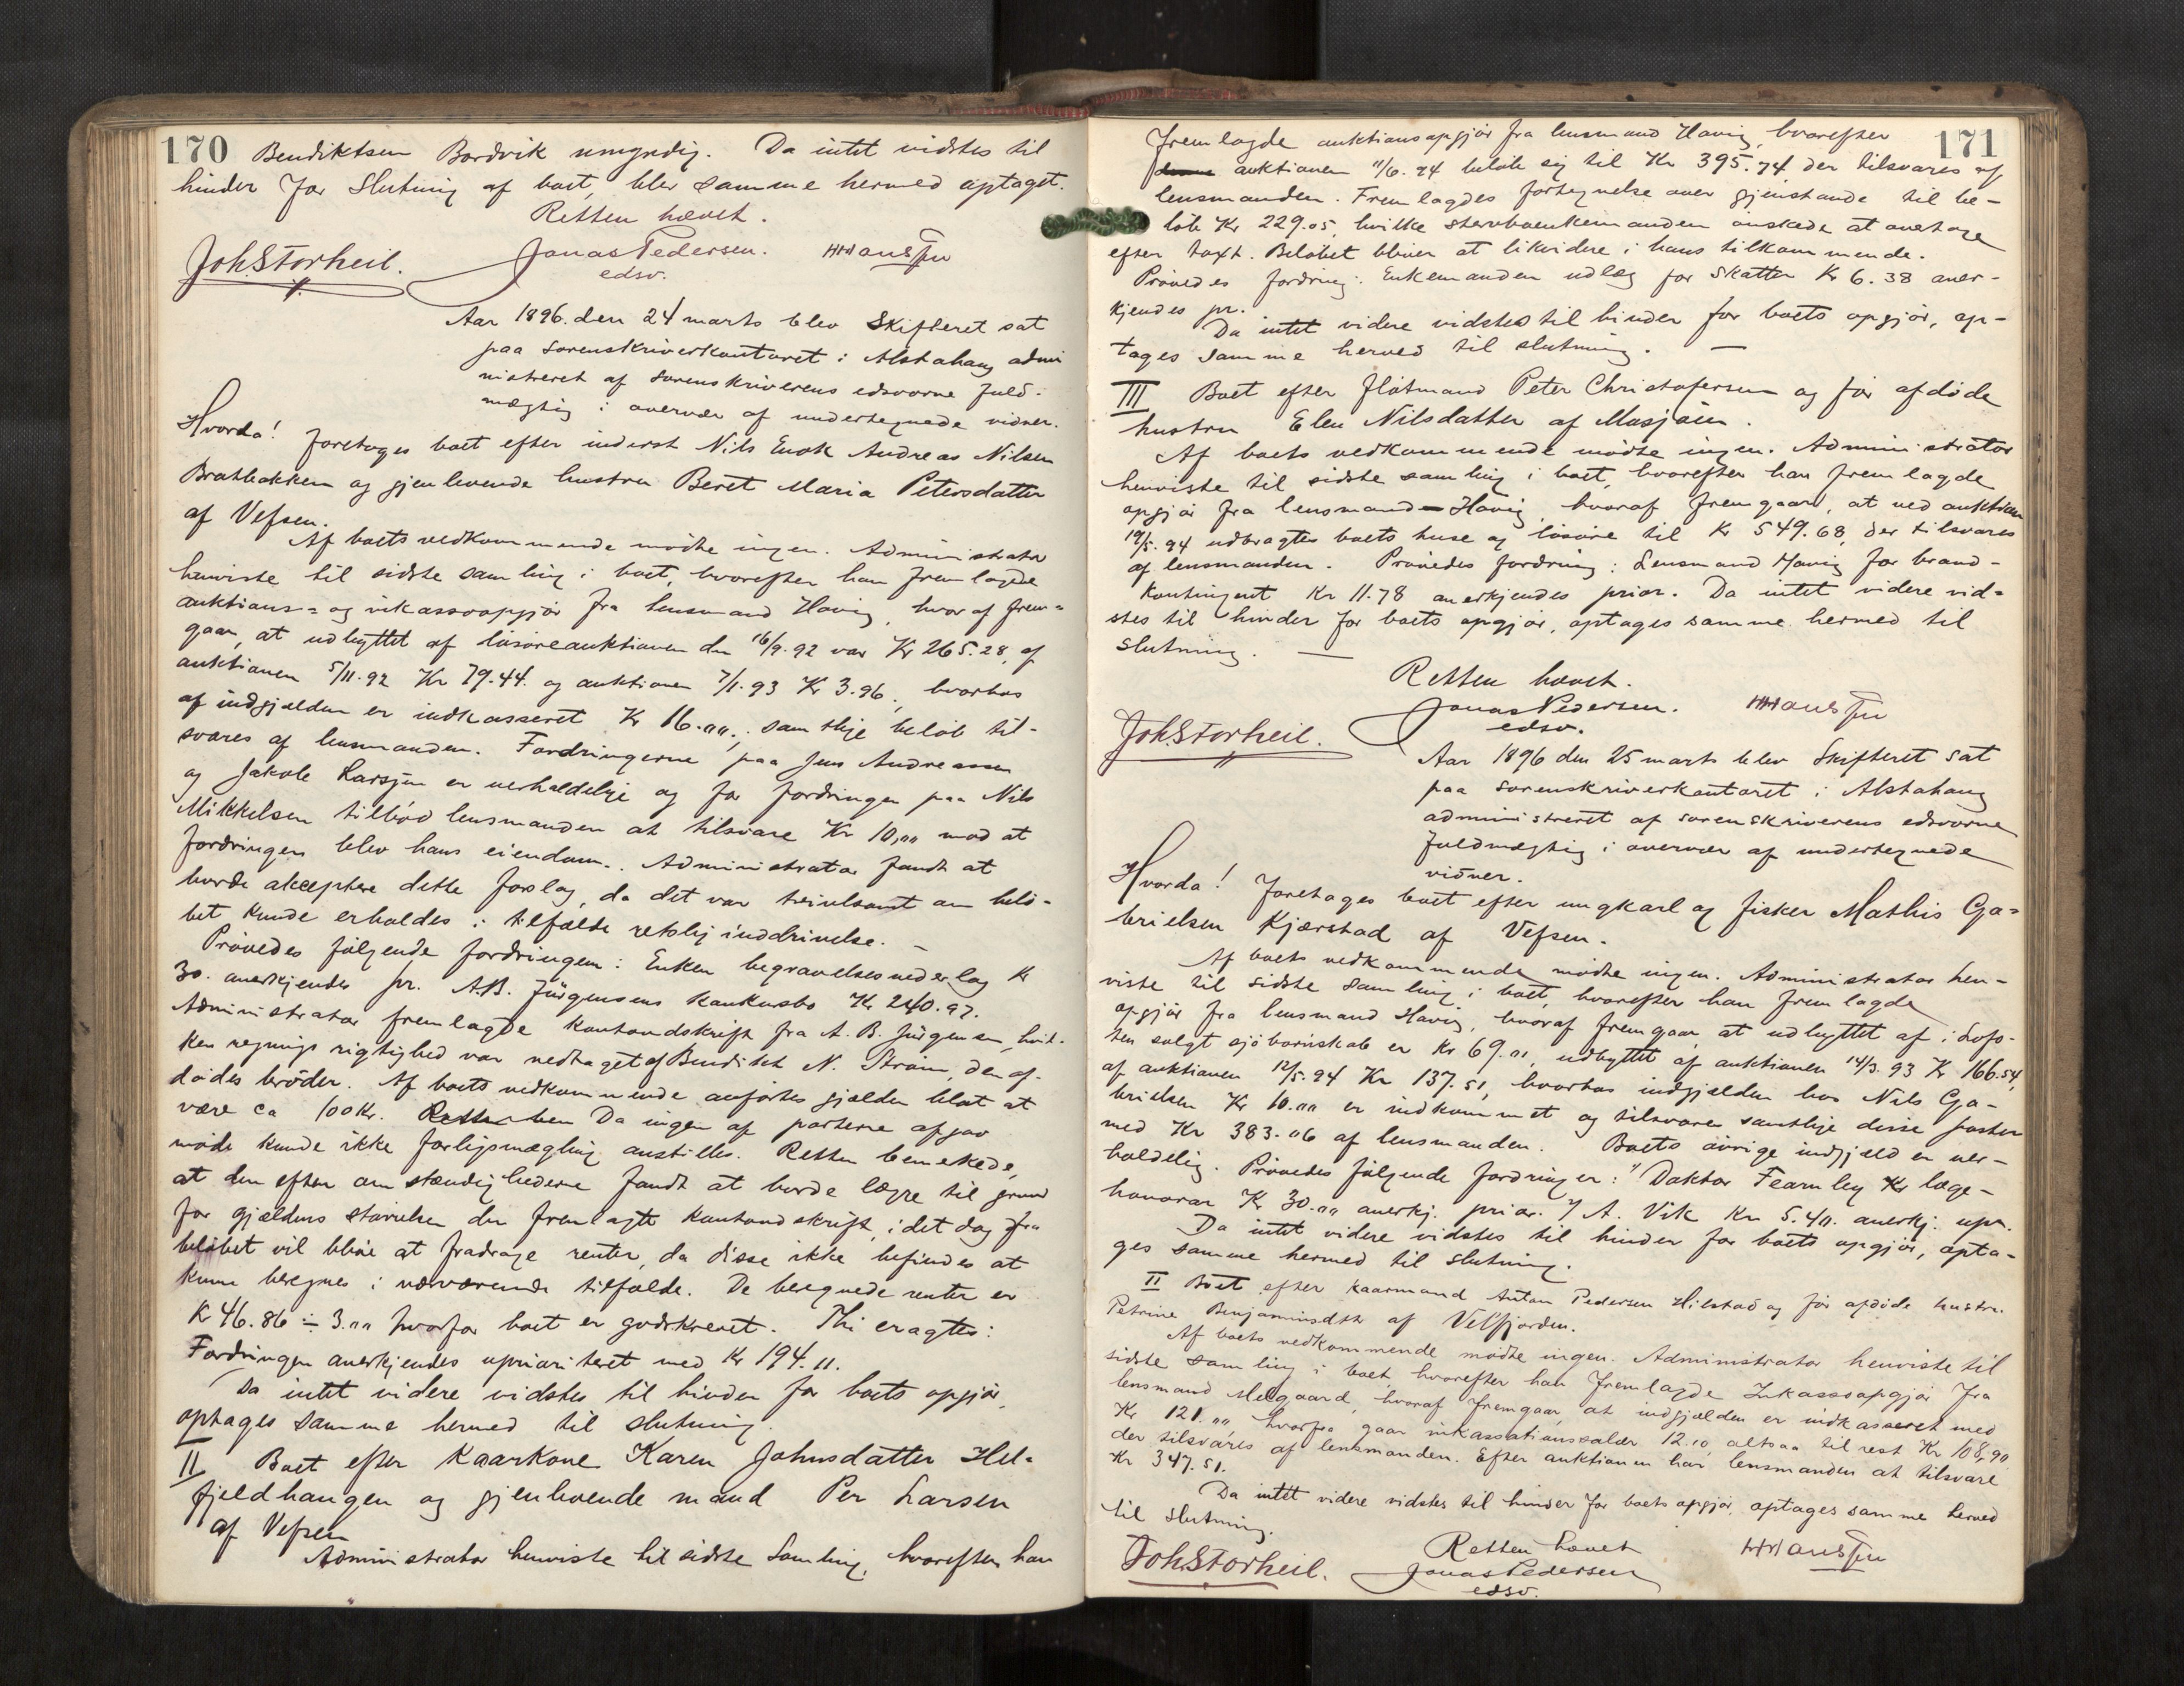 170 Bendiktsen Bordvik umyndig. Da intet vidstes til
hinder for Slutning af boet, blev samme hermed optaget.
Retten hævet.
JohStorheil. Jonas Pedersen. HHausfru
edsv.
Aar 1896. den 24 marts blev Skifteret sat
paa sorenskriverkontoret i Alstahaug admi
nistreret af sorenskriverens edsvorne fuld-
mægtig i overvær af undertegnede vidner.
Hvorda! foretoges boet efter inderst Nils Enok Andreas Nilsen
Bratbakken og gjenlevende hustru Beret Maria Petersdatter
af Vefsen.
Af boets vedkommende mødte ingen. Administrator
henviste til sidste samling i boet, hvorefter han fremlagde
auktions- og inkassoopgjør fra lensmand Havig, hvoraf frem-
gaar, at udbyttet af løsøreauktionen den 16/9.92 var Kr 265.28, af
auktionen 5/11.92 Kr 79.44. og auktionen 7/1.93 Kr 3.96, hvorhos
af indgjælden er indkasseret Kr 16.,,; samtlige beløb til-
svares af lensmanden. Fordringerne paa Jens Andreassen
og Jakob Larsen er uerholdelige og for fordringen paa Nils
Mikkelsen tilbød lensmanden at tilsvare Kr 10,,, mod at
fordringen blev hans eiendom. Administrator fandt at
burde akceptere dette forslag, da det var tvivlsomt om belø-
bet kunde erholdes i tilfælde retslig inddrivelse. —
Prøvedes følgende fordringen: Enken begravelsesnederlag Kr
30. anerkjendes pr. A.B. Jürgensens konkursbo Kr 240.97.
Administrator fremlagde kontoudskrift fra A. B. Jürgensen, hvil-
ken regnings rigtighed var vedtaget af Bendikt N. Strøm, den af-
dødes broder. Af boets vedkommende anførtes gjælden blot at
være ca 100 Kr. Da ingen af parterne afgav
møde kunde ikke forligsmægling anstilles. Retten bemerkede,
at den efter omstændighederne fandt at burde lægge til grund
for gjældens størrelse den fremlagte kontoudskrift, i det dog fra
beløbet vil blive at fradrage renter, da disse ikke befindes at
kunne beregnes i nærværende tilfælde. De beregnede renter er
Kr 46.86 ÷ 3.,, hvorfor boet er godskrevet. Thi eragtes:
Fordringen anerkjendes uprioriteret med Kr 194.11.
Da intet videre vidstes til hinder for boets opgjør,
optages samme hermed til slutning.
II Boet efter Kaarkone Karen Johnsdatter Hel-
fjeldhaugen og gjenlevende mand Per Larsen
af Vefsen
Administrator henviste til sidste Samling, hvorefter han
171
fremlagde auktionsopgjør fra lensmand Havig, hvorefter
auktionen 11/6.94 beløb sig til Kr 395.74 der tilsvares af
lensmanden. Fremlagdes fortegnelse over gjenstande til be-
løb Kr 229.05, hvilke stervboenkemanden ønskede at overtage
efter taxt. Beløbet bliver at likvidere i hans tilkommende.
Prøvedes fordring: Enkemanden udlæg for Skatter Kr 6.38 aner-
kjendes pr.
Da intet videre vidstes til hinder for boets opgjør, op-
tages samme herved til slutning. —
III Boet efter fløtmand Peter Christofersen og før afdøde
hustru Elen Nilsdatter af Mosjøen.
Af boets vedkommende mødte ingen. Administrator
henviste til sidste samling i boet, hvorefter han fremlagde
opgjør fra lensmand Havig, hvoraf fremgaar, at ved auktion
19/5.94 udbragtes boets huse og løsøre til Kr 549.68, der tilsvares
af lensmanden. Prøvedes fordring: Lensmand Havig for brand-
kontingent Kr 11.78 anerkjendes prior. Da intet videre vid-
stes til hinder for boets opgjør, optages samme hermed til
slutning. —
Retten hævet.
JohStorheil. Jonas Pedersen. HHausfru
edsv.
Aar 1896 den 25 marts blev Skifteret sat
paa sorenskriverkontoret i Alstahaug
administreret af sorenskriverens edsvorne
fuldmægtig i overvær af undertegnede
vidner.
Hvorda! foretages boet efter ungkarl og fisker Mathis Ga-
brielsen Kjærstad af Vefsen.
Af boets vedkommende mødte ingen. Administrator hen-
viste til sidste samling i boet, hvorefter han fremlagde
opgjør fra lensmand Havig, hvoraf fremgaar, at udbyttet af i Lofo-
ten solgt sjøbarnskab er Kr 69.,,, udbyttet af auktionen 14/3.93 Kr 166.54,
af auktionen 12/5.94 Kr 137.51, hvorhos indgjælden hos Nils Ga-
brielsen Kr 10.,, er indkommet og tilsvares samtlige disse poster
med Kr 383.06 af lensmanden. Boets øvrige indgjæld er uer-
holdelig. Prøvedes følgende fordringer: Doktor Fearnley Kr læge-
honorar Kr 30.,, anerkj. prior. A. Vik Kr 5.40. anerkj. upr.
Da intet videre vidstes til hinder for boets opgjør, opta-
ges samme hermed til slutning.
II Boet efter kaarmand Anton Pedersen Hilstad og før afdøde hustru
Petrine Benjaminsdtr af Velfjorden.
Af boets vedkommende mødte ingen. Administrator henviste til
sidste samling i boet, hvorefter han fremlagde Inkassoopgjør fra
lensmand Melgaard, hvoraf fremgaar, at indgjælden er indkasseret med
Kr 121.,, hvorfra gaar inkassationssalær 12.10, altsaa til rest Kr 108,90
der tilsvares af lensmanden. Efter auktionen har lensmanden at tilsvare
Kr 347.51.
Da intet videre vidstes til hinder for boets opgjør, optages samme herved
til slutning.
Retten hævet
JohStorheil. Jonas Pedersen HHausfru
edsv.